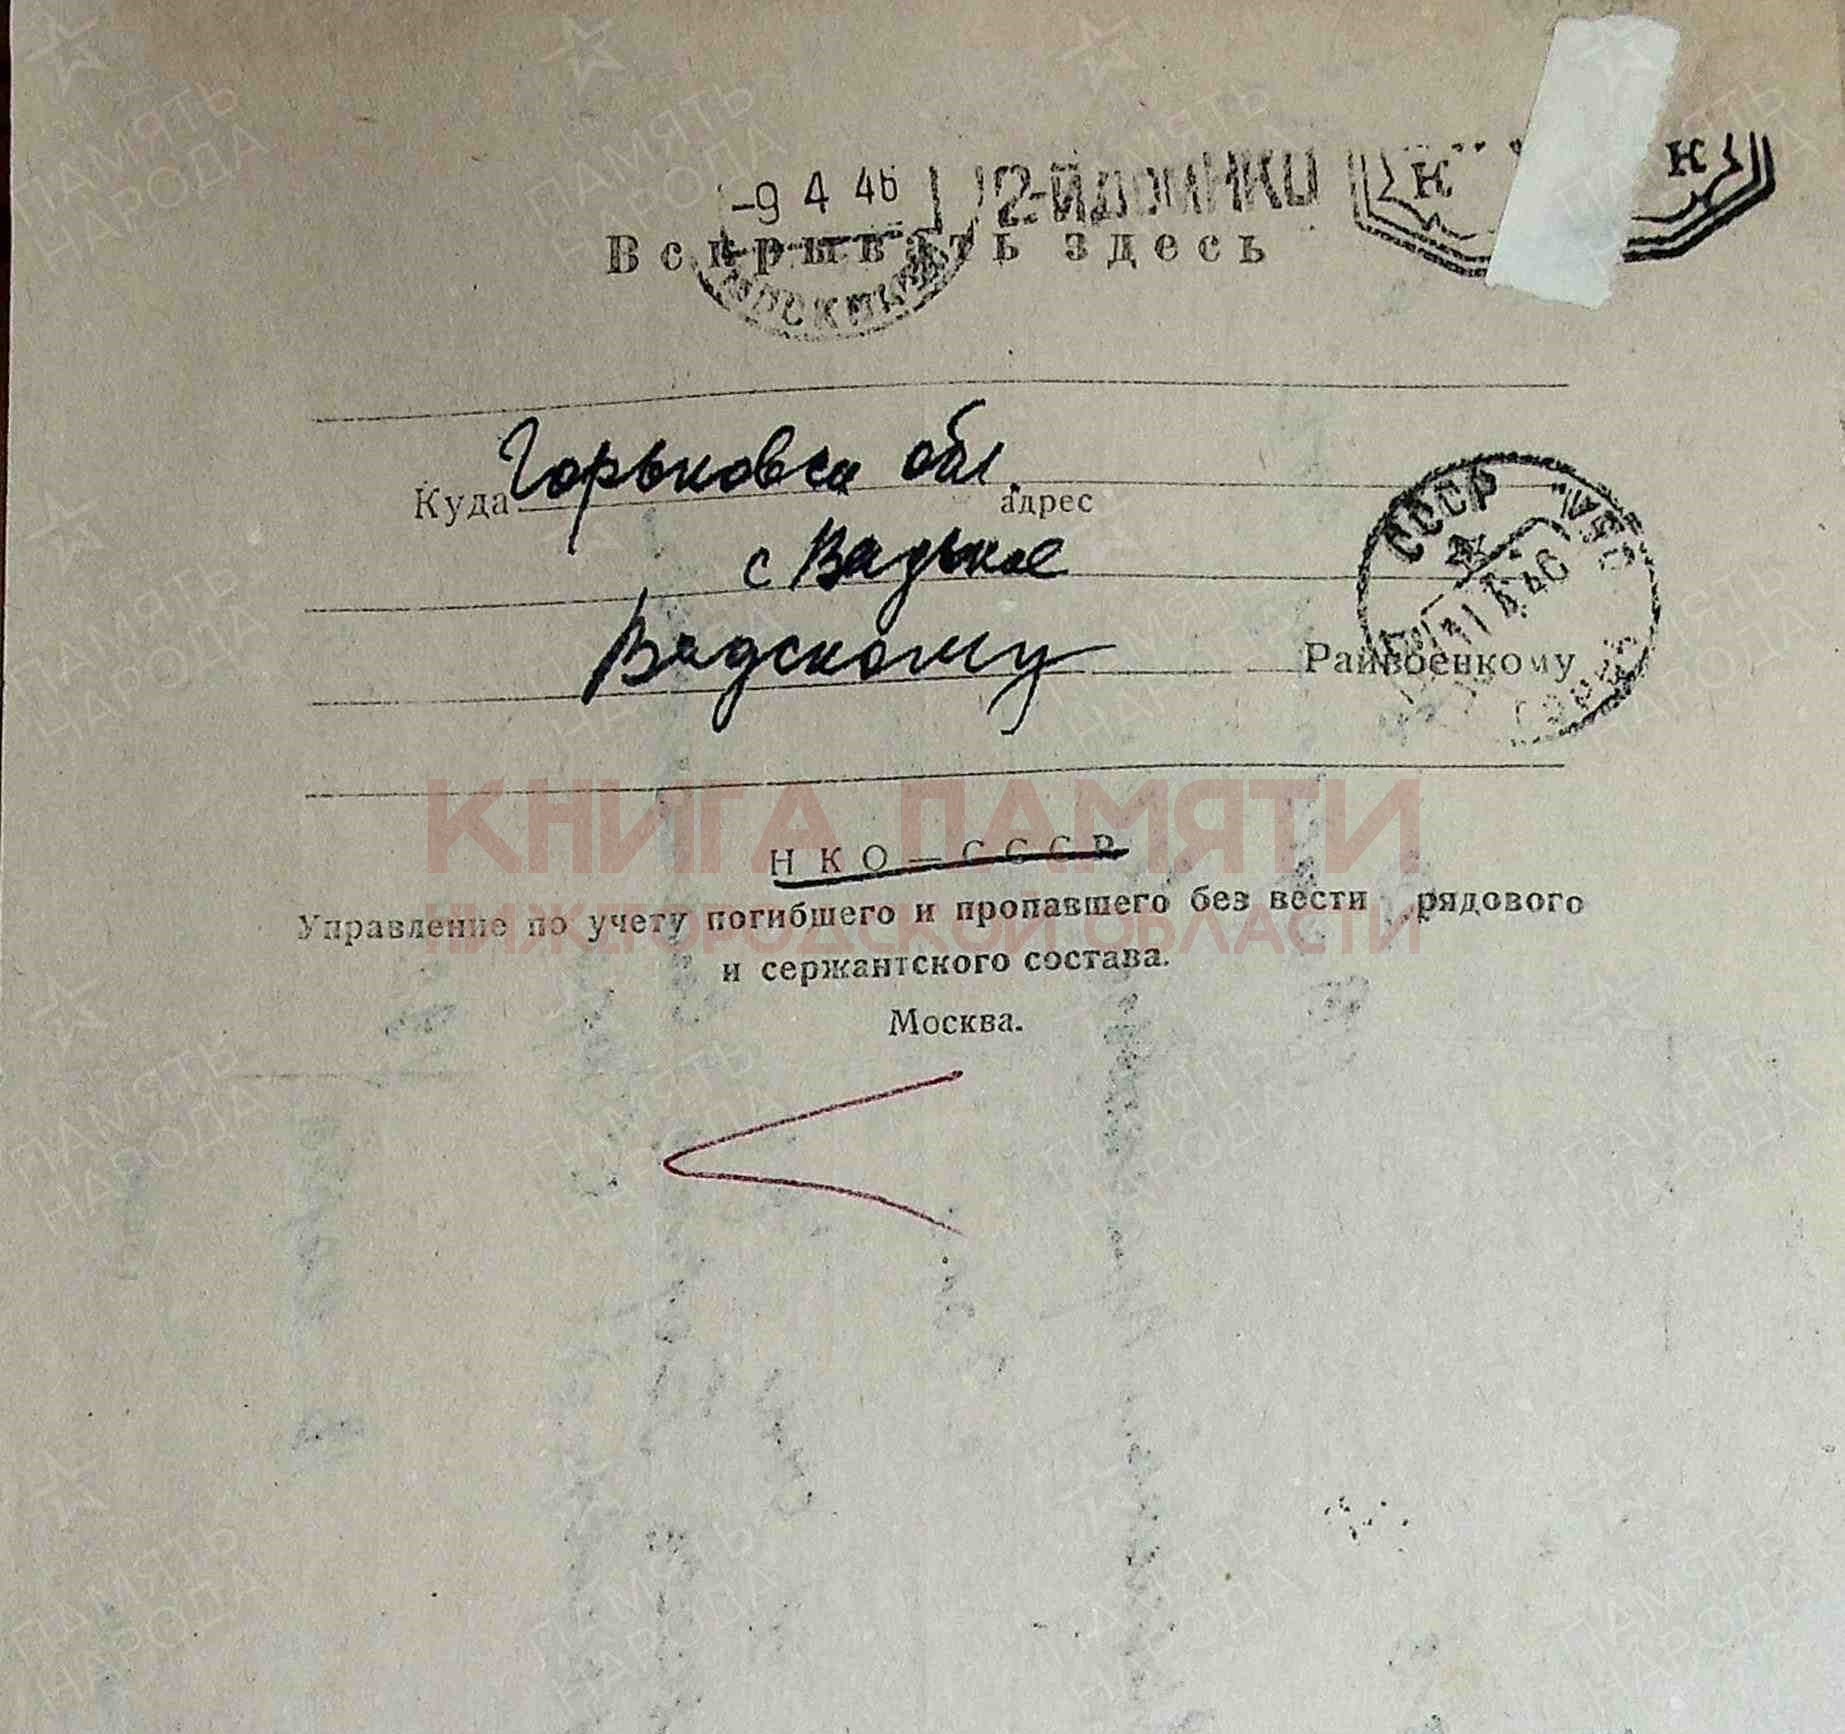 -9 4 46 2-й дом НКО
К К
Вскрывать здесь
Горьковск обл.
Куда адрес
с Вадское
СССР
11 4 46
Вадскому Райвоенкому
КНИГА ПАМЯТИ
НИЖЕГОРОДСКОЙ ОБЛАСТИ
НКО—СССР
Управление по учету погибшего и пропавшего без вести рядового
и сержантского состава.
Москва.
ПАМЯТЬ НАРОДА